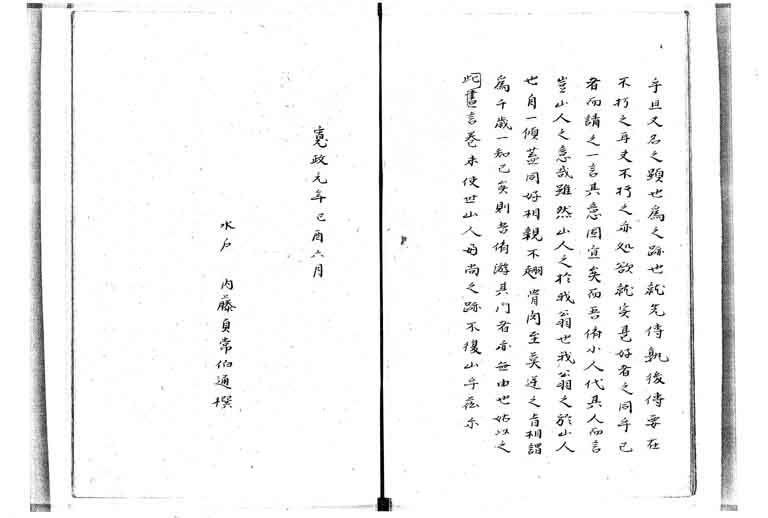 乎且又名之顕也為之跡也就先傳孰後傳要在
不朽之耳夫不朽之亦如欲就実是好者之同乎已
者而請之一言其意固宜矣而吾儕小人代其人而言
豈山人之意哉雖然山人之於我翁也我翁之於山人
也自一傾蓋同好相親不翅骨肉至莫逆之旨相謂
為千歳一知己矣則吾儕游其門者亦無由也姑以之
此書言巻末使世山人好尚之跡不獲山乎爾
寛政元年己酉六月
水戸 内藤貞常伯通撰